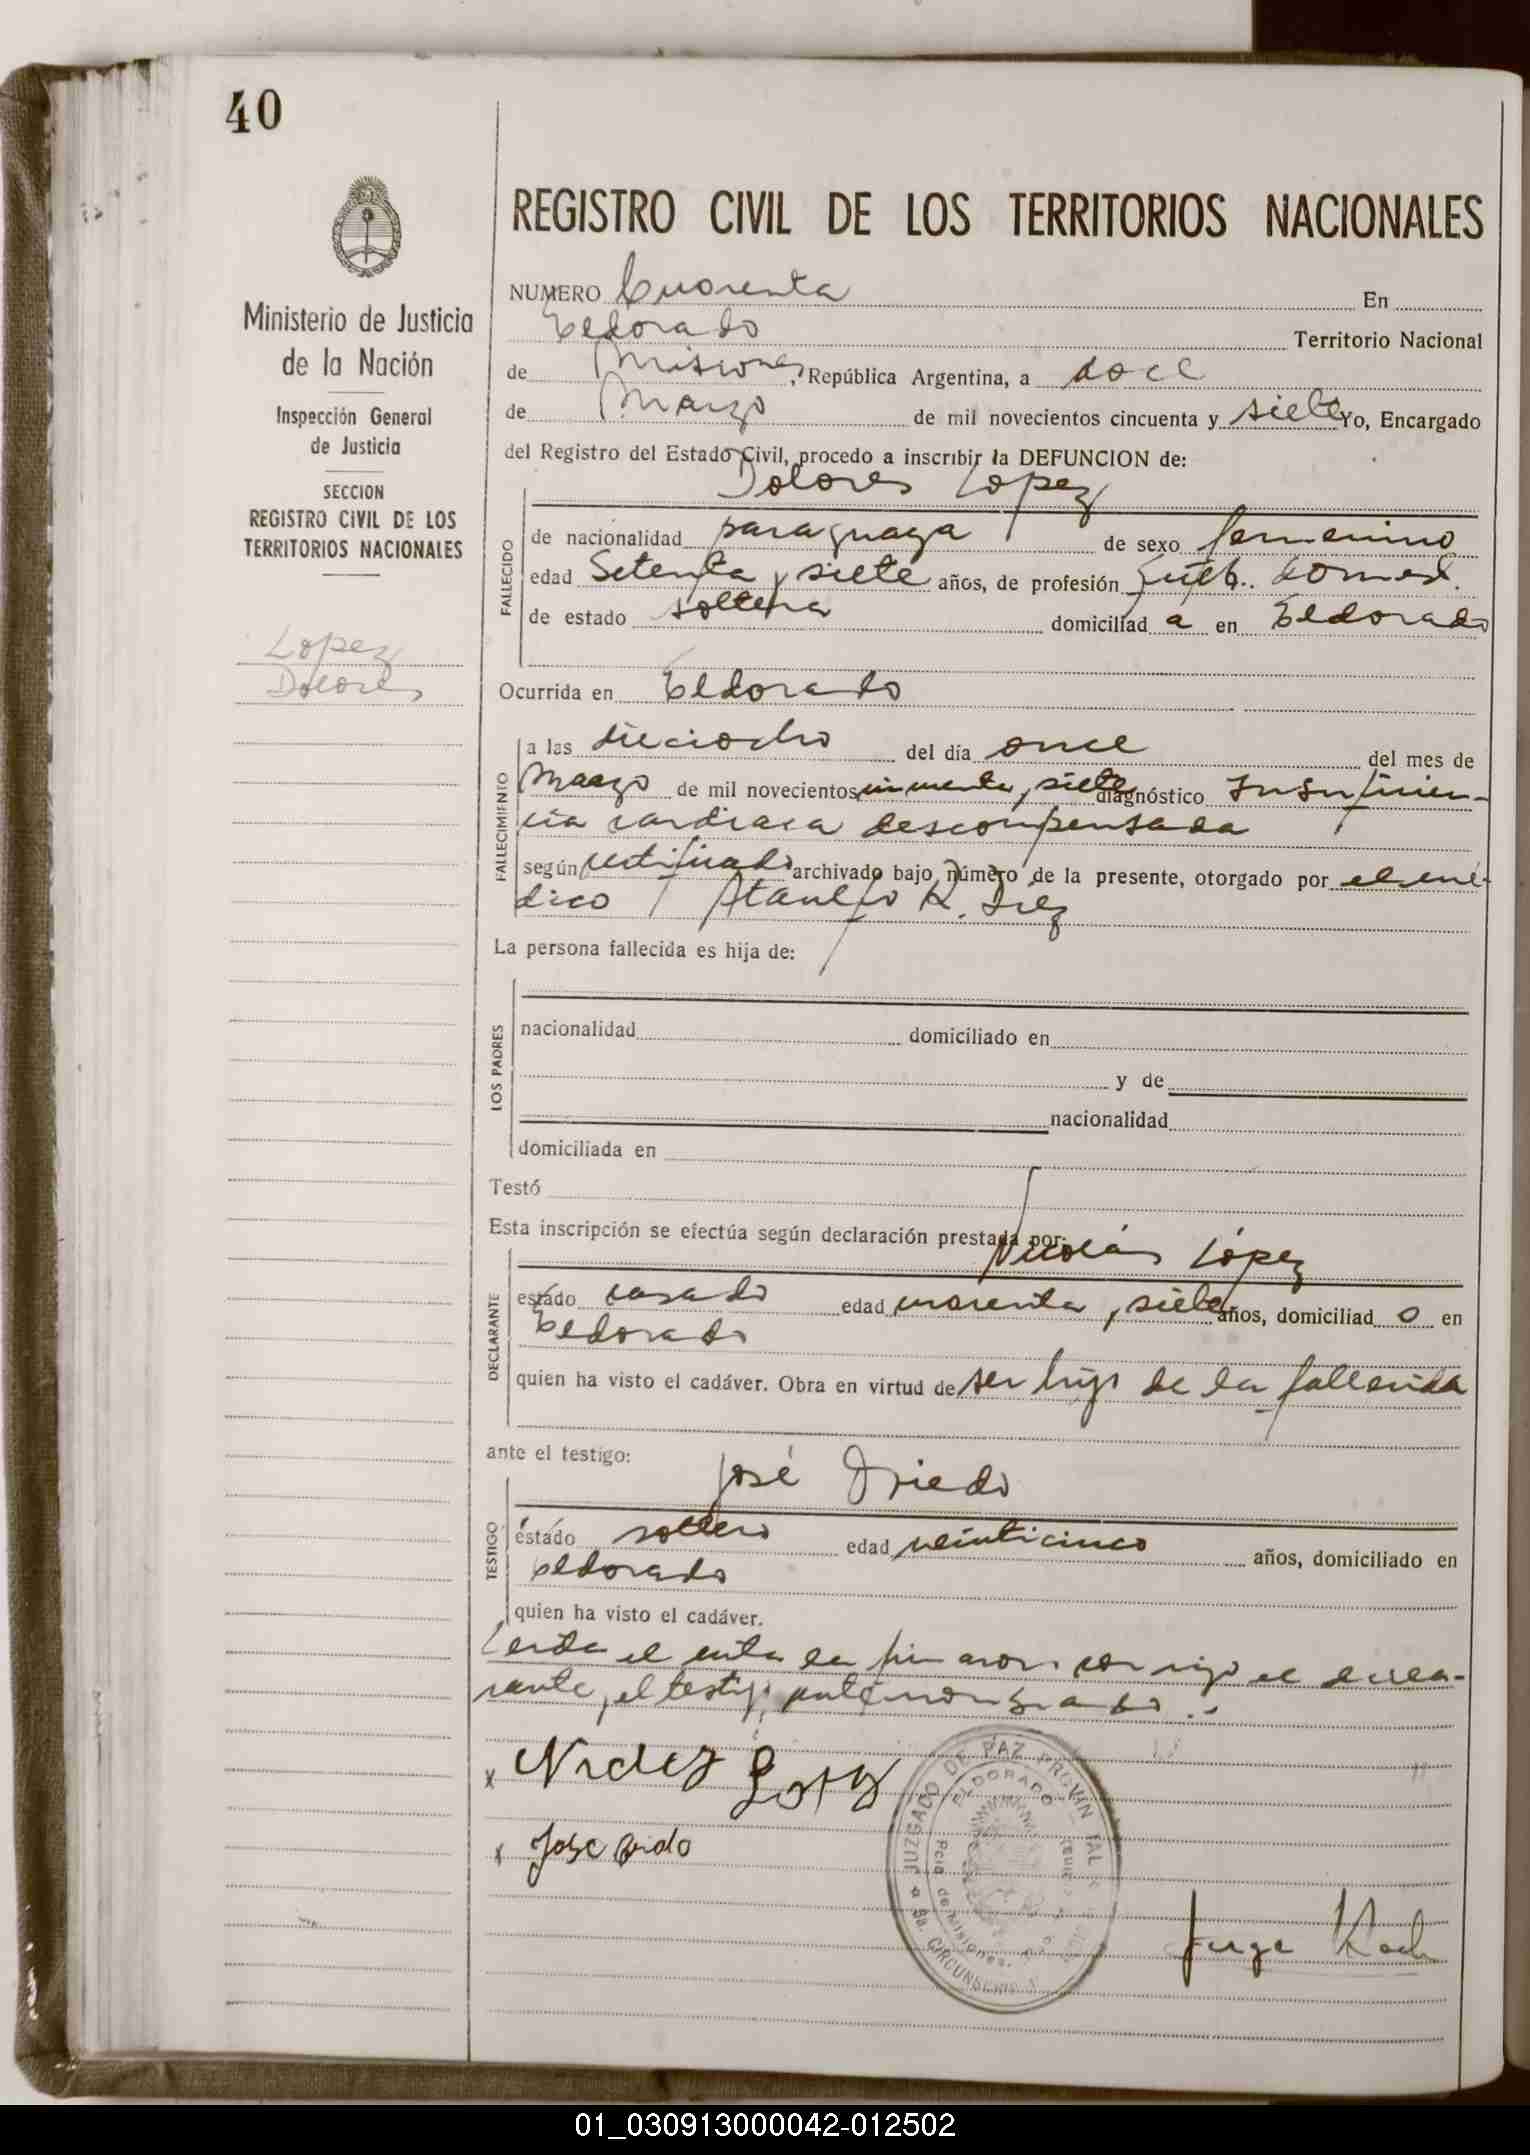 40
REGISTRO CIVIL DE LOS TERRITORIOS NACIONALES
Ministerio de Justicia
de la Nación
Inspección General
de Justicia
SECCION
REGISTRO CIVIL DE LOS
TERRITORIOS NACIONALES
Lopez
Dolores
NUMERO Cuarenta En
Eldorado Territorio Nacional
de Misiones, República Argentina, a doce
de Marzo de mil novecientos cincuenta y siete Yo, Encargado
del Registro del Estado Civil, procedo a inscribir la DEFUNCION de:
Dolores Lopez
FALLECIDO
de nacionalidad paraguaya de sexo femenino
edad Setenta y siete años, de profesión domest.
de estado soltera domiciliad a en Eldorado
Ocurrida en Eldorado
FALLECIMIENTO
a las dieciocho del día once del mes de
Marzo de mil novecientos cincuenta y siete diagnóstico Insuficien-
cia cardiaca descompensada
según certificado archivado bajo número de la presente, otorgado por el mé-
dico R.
La persona fallecida es hija de:
LOS PADRES
nacionalidad domiciliado en
y de
nacionalidad
domiciliada en
Testó
Esta inscripción se efectúa según declaración prestada por:
Nicolás López
DECLARANTE
estado casado edad cuarenta y siete años, domiciliad o en
Eldorado
quien ha visto el cadáver. Obra en virtud de ser hijo de la fallecida
ante el testigo:
José Oviedo
TESTIGO
estado soltero edad veinticinco años, domiciliado en
Eldorado
quien ha visto el cadáver.
Leida el acta la firmaron conmigo el decla-
rante, el testigo
x
x Jose
JUZGADO DE PAZ PROVINCIAL
ELDORADO
Pcia de Misiones.
CIRCUNSCRIP
Jorge Koch
01_030913000042-012502